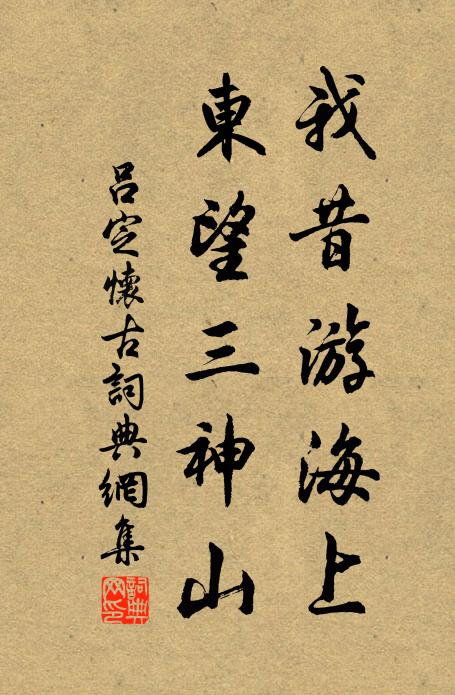 我昔游海上
東望三神山
吕定懷古詞典網集
詞典
网印